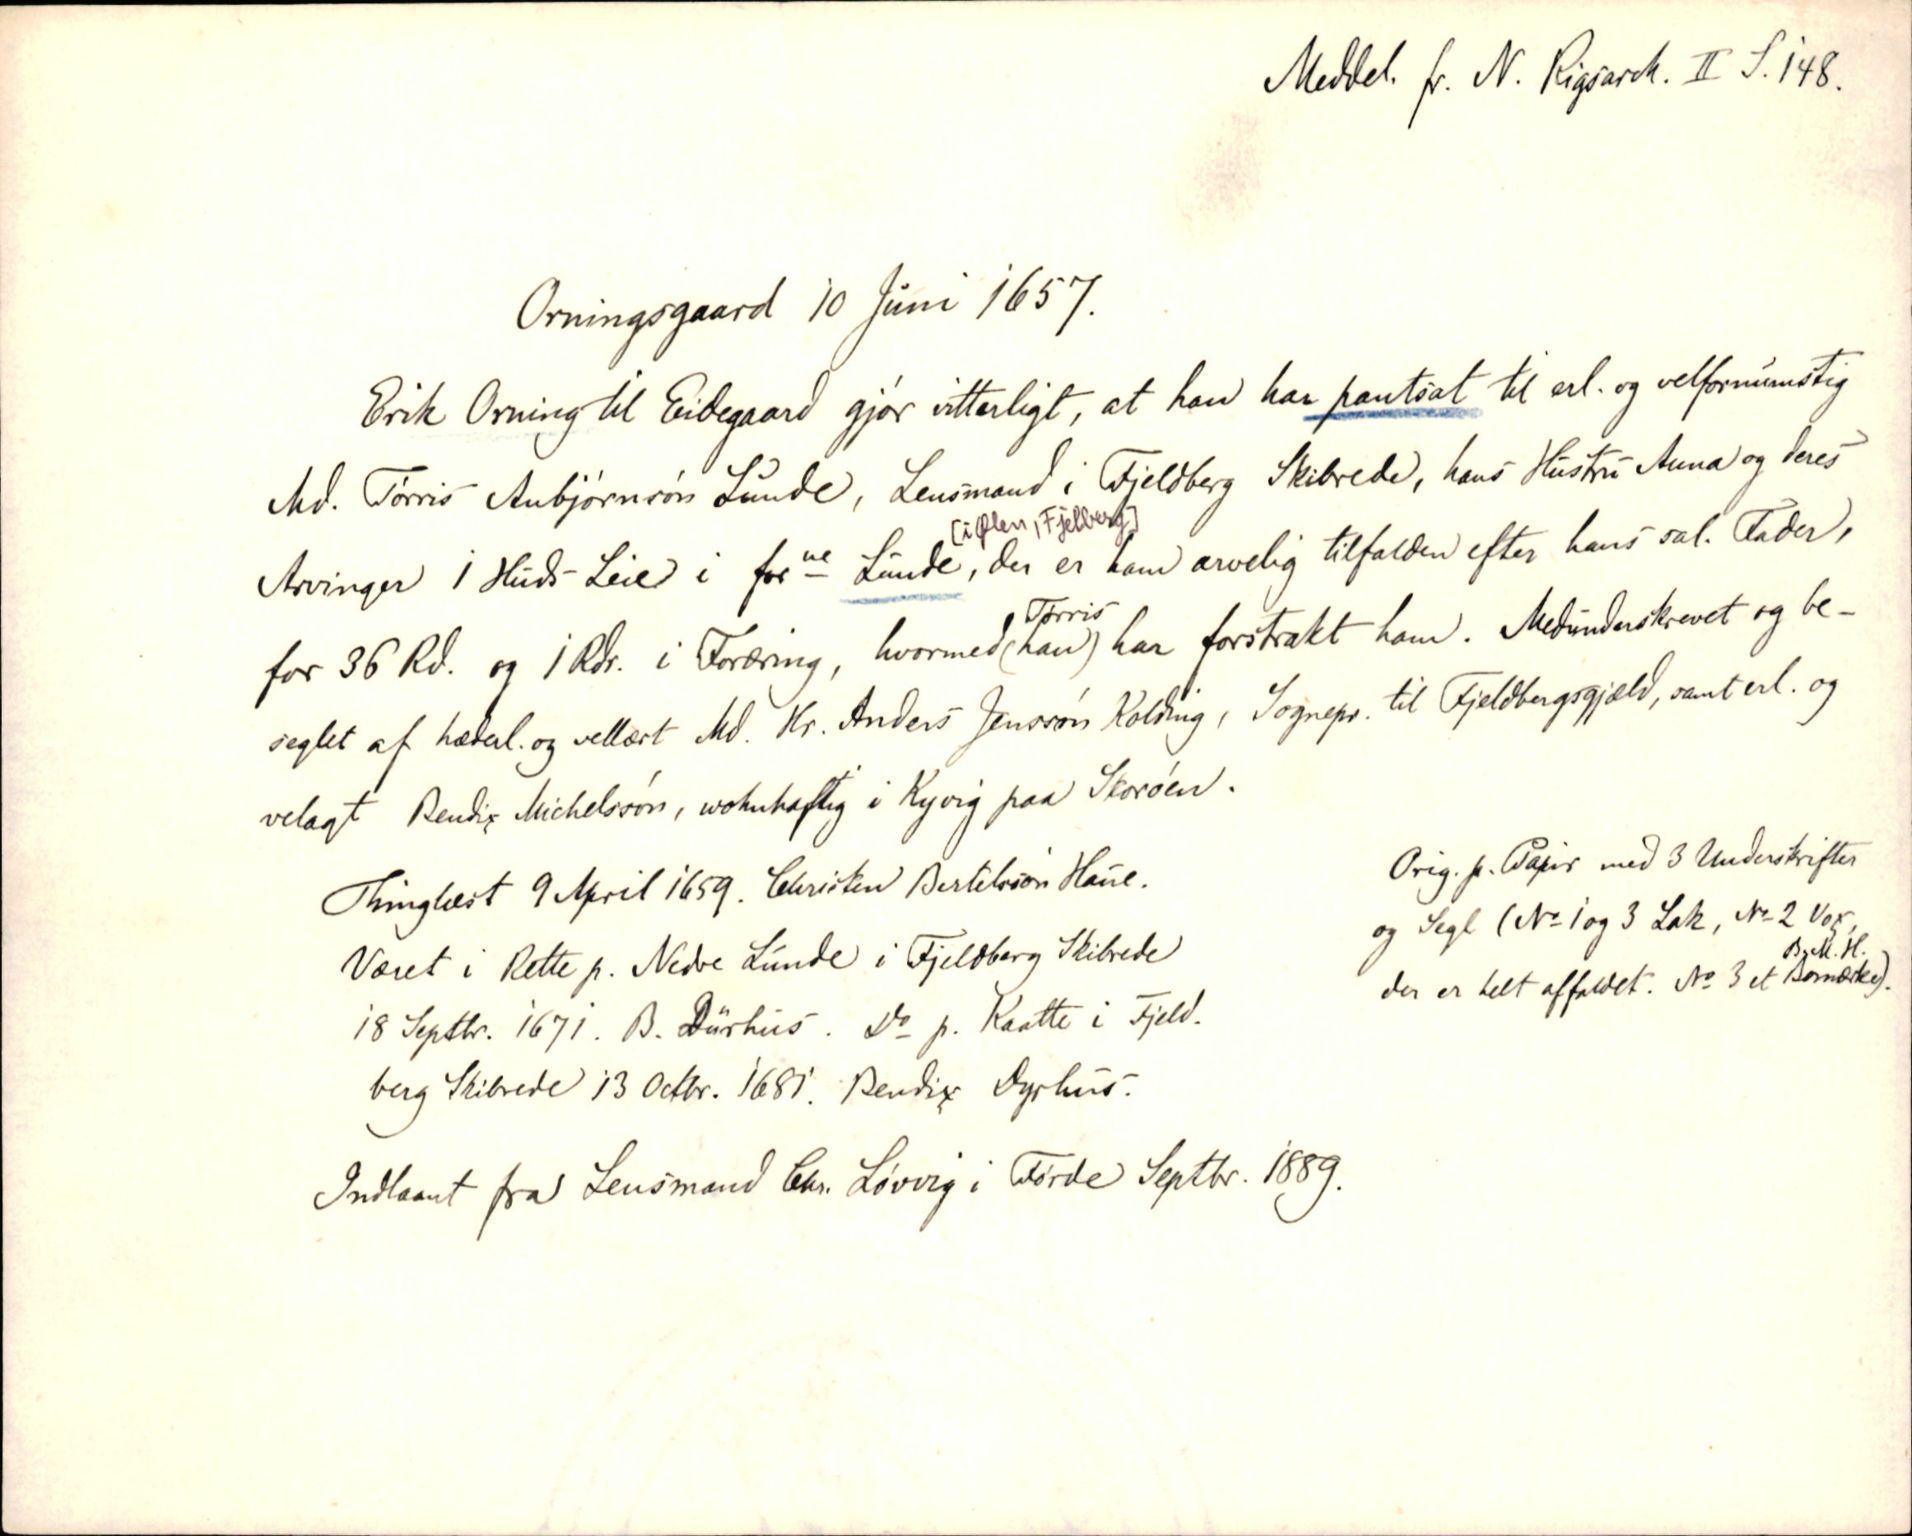 Meddel. fr. N. Rigsark. II S. 148.
Orningsgaard 10 Juni 1657.
Erik Orning til Eidegaard gjör vitterligt, at han har pantsat til erl. og velfornumstig
Md. Törris Anbjörnsön Lunde, Lensmand i Fjeldberg Skibrede, hans Hustru Anna og deres
[i Ølen, Fjelberg]
Arvinger 1 Huds Leie i forne Lunde, der er ham arvelig tilfalden efter hans sal. Fader,
Törris
for 36 Rd. og 1 Rdr. i Foræring, hvormed (han) har forstrakt ham. Medunderskrevet og be-
seglet af hæderl. og vellært Md. Hr. Anders Jenssön Kolding, Sognepr. til Fjeldbergsgjæld, samt erl. og
velagt Bendix Michelssön, wohnhaftig i Kyvig paa Skoröen.
Thinglæst 9 April 1659. Christen Bertelssön Haue.
Været i Rette p. Nedre Lunde i Fjeldberg Skibrede
18 Septbr. 1671. B. Dürhus. Do p. Kaatte i Fjeld-
berg Skibrede 13 Octbr. 1681. Bendix Dyrhus.
Orig. p. Papir med 3 Underskrifter
og Segl (No 1 og 3 Lak, No 2 Vox,
B. M. H.
der er helt affaldet. No 3 et Bomærke).
Indlaant fra Lensmand Chr. Lövvig i Förde Septbr. 1889.